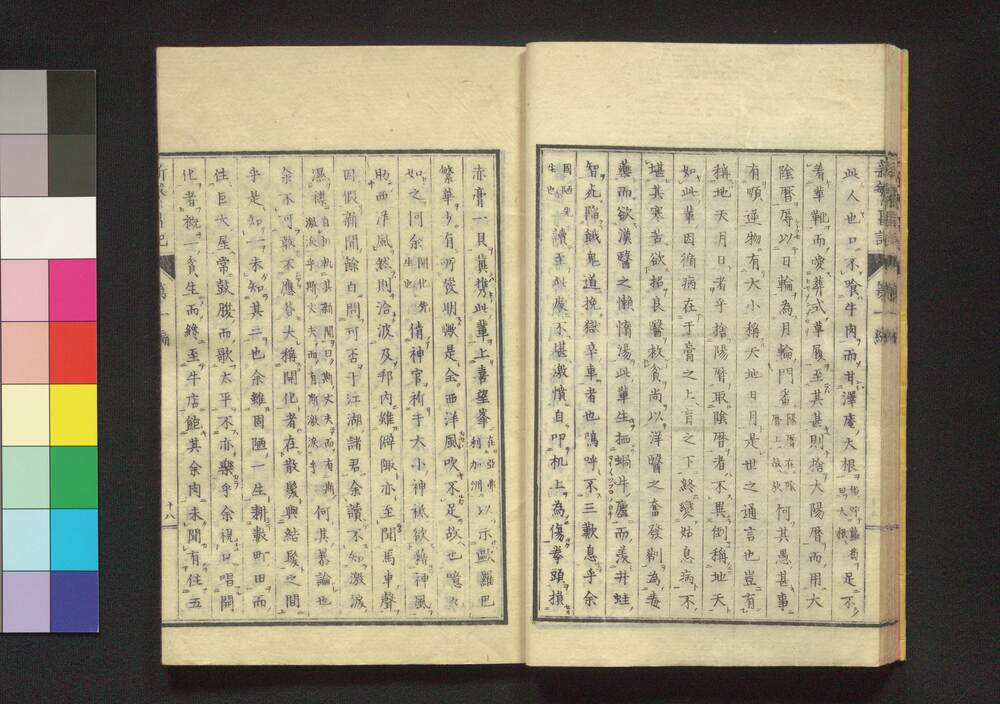 此人也口不喰牛肉而甘澤庵大根足不
着華靴而愛葬式草履至其甚則捨大陽暦而用大
陰暦辱以日輪為月輪門番何其愚甚事
有順逆物有大小稱天地日月是世之通言也豈有
稱地天月日者乎捨陽暦取陰暦者不異倒稱地天
如此輩因循病在于膏之上肓之下終變姑息病不
堪其寒苦欲招良醫救貧尚以洋醫之奮發劑為毒
藥而欲漢醫之懶惰湯此輩生栖蝸牛廬而羨井蛙
智死陷餓鬼道挽獄卒車者也嗚呼不三歎息乎余
讀至此處不堪激憤自叩机上為傷拳頭損
赤膏一貝冀携此輩上喜望峯在亞弗利加洲以示歐羅巴
繁華少有所發明歟是全西洋風吹不足故也噫
如之何余開化先生也倩神官祈于大小神祇欲藉神風
助西洋風然則洽波及邦内雖僻陬亦至聞馬車聲
因假新聞餘白問可否于江湖諸君余讀不知激淚
濕襟何其暴論也
余不可敢不應答大稱開化者在散髪與結髪之間
乎是知一未知其二也余雖固陋一生耕數町田而
住巨大屋常鼓腹而歌太平不亦樂乎余視口唱開
化者視一貧生而終至牛店飽其余肉未聞有住五
十八